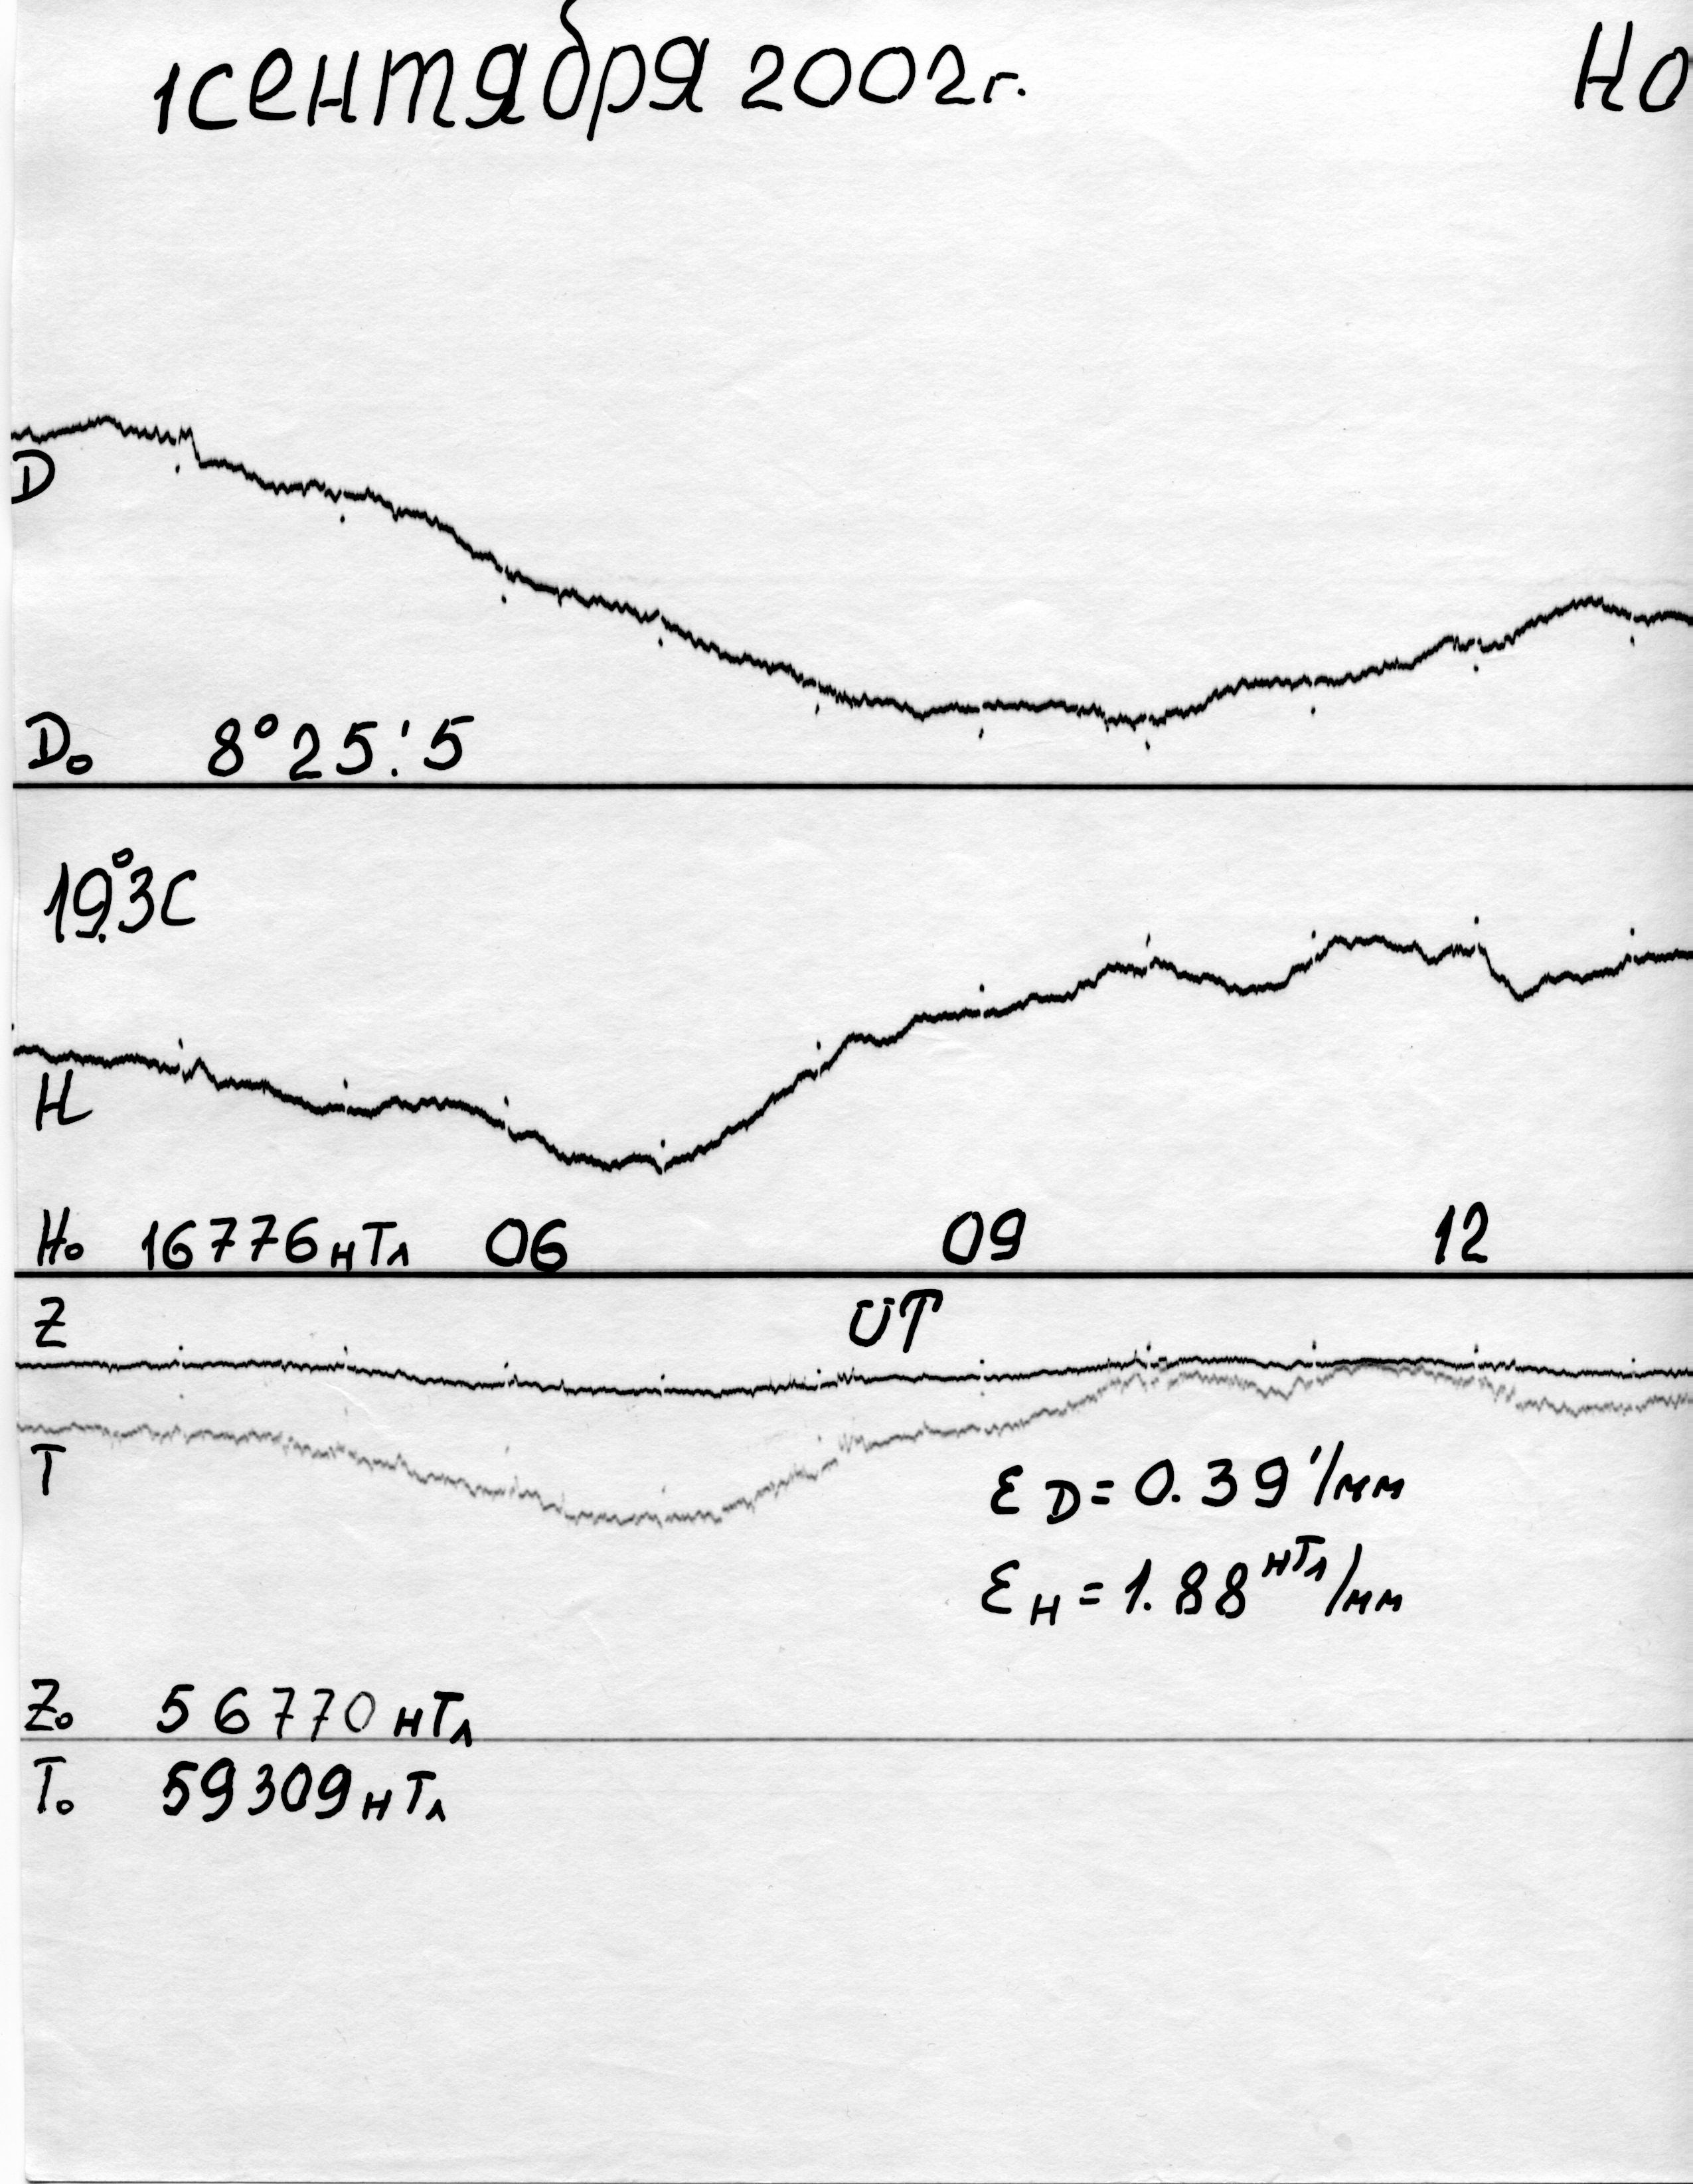 1 сентября 2002г. Но
D
D₀ 8°25.'5
19.°3C
H
H₀ 16776 нТл 06 09 12
Z UT
T
ε D = 0.39 '/мм
ε H = 1.88 нТл/мм
Z₀ 56770 нТл
T₀ 59309 нТл